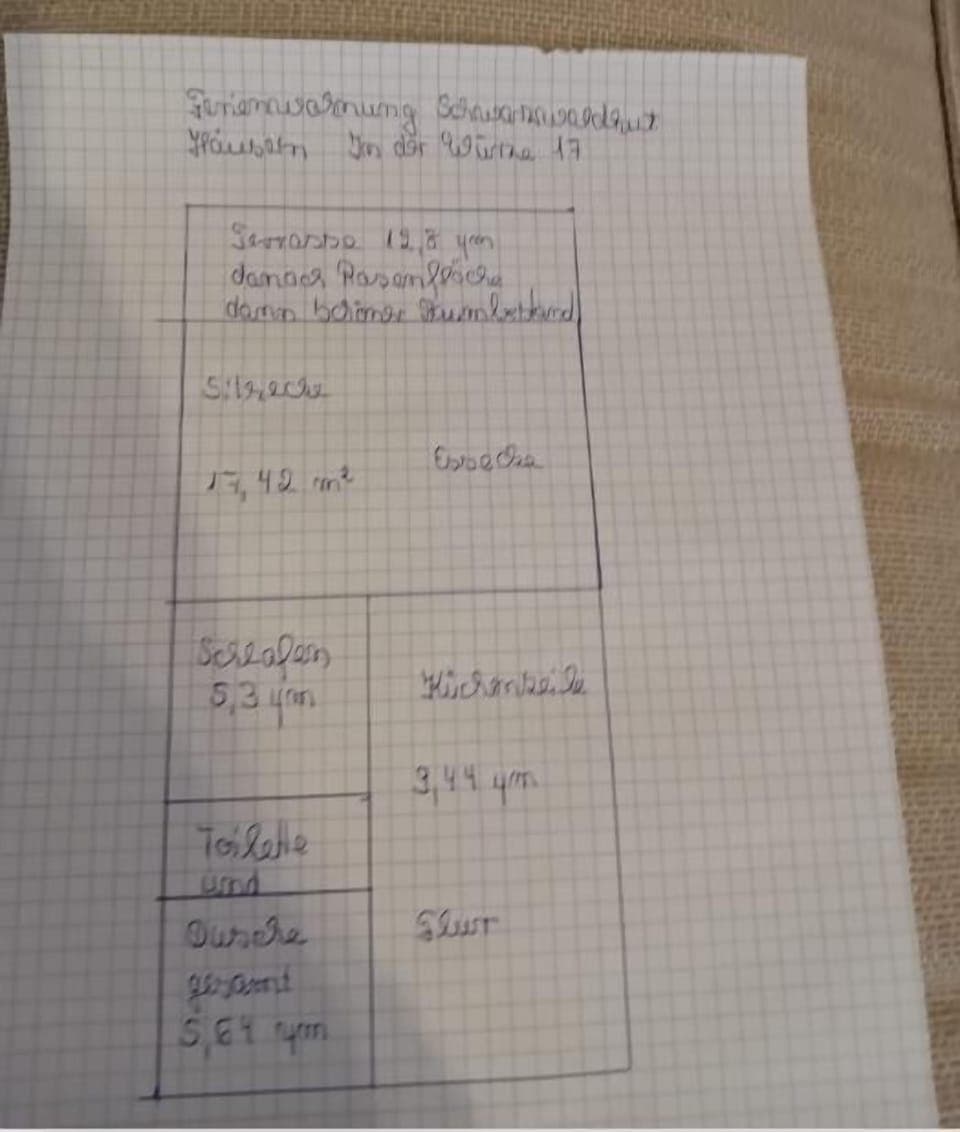 Ferienwohnung Schwarzwaldglut
Häusern In der Würze 17
Terrasse 12,8 qm
danach Rasenfläche
dann schöner Baumbestand
Sitzecke
Essecke
17,42 m²
Schlafen
5,3 qm
Küchenzeile
3,44 qm
Toilette
und
Dusche
gesamt
5,64 qm
Flur